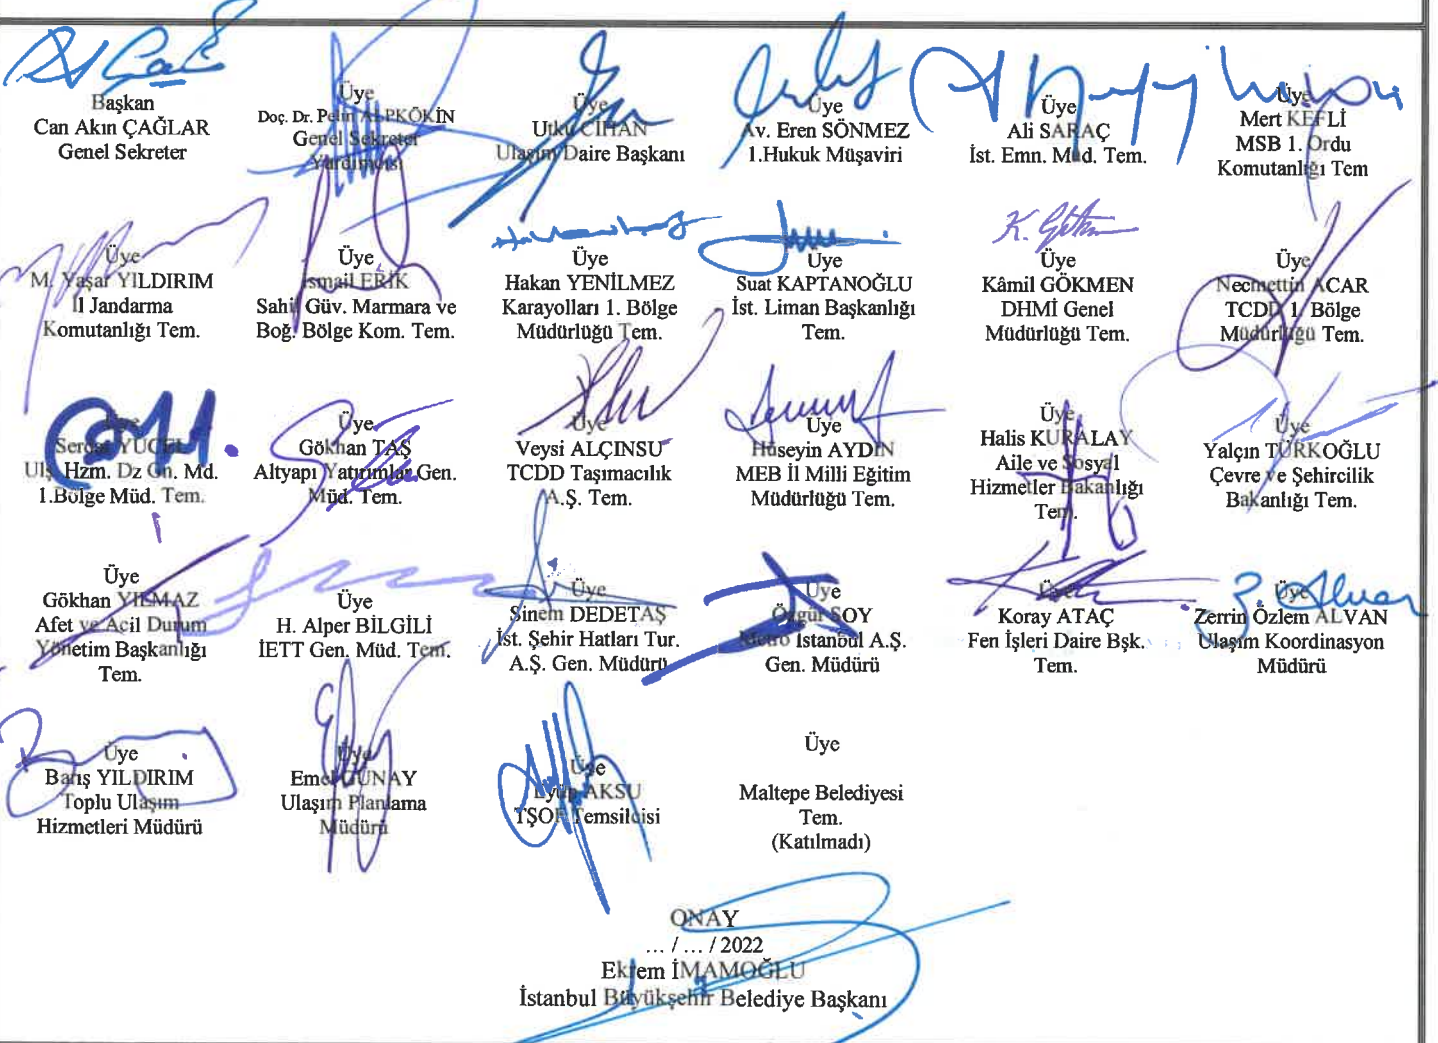 Başkan
Can Akın ÇAĞLAR
Genel Sekreter
Üye
Doç. Dr. Pelin ALPKÖKİN
Genel Sekreter
Yardımcısı
Üye
Utku CİHAN
Ulaşım Daire Başkanı
Üye
Av. Eren SÖNMEZ
1.Hukuk Müşaviri
Üye
Ali SARAÇ
İst. Emn. Müd. Tem.
Üye
Mert KEFLİ
MSB 1. Ordu
Komutanlığı Tem
Üye
M. Yaşar YILDIRIM
İl Jandarma
Komutanlığı Tem.
Üye
İsmail ERİK
Sahil Güv. Marmara ve
Boğ. Bölge Kom. Tem.
Üye
Hakan YENİLMEZ
Karayolları 1. Bölge
Müdürlüğü Tem.
Üye
Suat KAPTANOĞLU
İst. Liman Başkanlığı
Tem.
Üye
Kâmil GÖKMEN
DHMİ Genel
Müdürlüğü Tem.
Üye
Necmettin ACAR
TCDD 1. Bölge
Müdürlüğü Tem.
Üye
Serdar YÜCEL
Ulş. Hzm. Dz Gn. Md.
1.Bölge Müd. Tem.
Üye
Gökhan TAŞ
Altyapı Yatırımlar Gen.
Müd. Tem.
Üye
Veysi ALÇINSU
TCDD Taşımacılık
A.Ş. Tem.
Üye
Hüseyin AYDIN
MEB İl Milli Eğitim
Müdürlüğü Tem.
Üye
Halis KURALAY
Aile ve Sosyal
Hizmetler Bakanlığı
Tem.
Üye
Yalçın TÜRKOĞLU
Çevre ve Şehircilik
Bakanlığı Tem.
Üye
Gökhan YILMAZ
Afet ve Acil Durum
Yönetim Başkanlığı
Tem.
Üye
H. Alper BİLGİLİ
İETT Gen. Müd. Tem.
Üye
Sinem DEDETAŞ
İst. Şehir Hatları Tur.
A.Ş. Gen. Müdürü
Üye
Özgür SOY
Metro İstanbul A.Ş.
Gen. Müdürü
Üye
Koray ATAÇ
Fen İşleri Daire Bşk.
Tem.
Üye
Zerrin Özlem ALVAN
Ulaşım Koordinasyon
Müdürü
Üye
Barış YILDIRIM
Toplu Ulaşım
Hizmetleri Müdürü
Üye
Emel GÜNAY
Ulaşım Planlama
Müdürü
Üye
Eyüp AKSU
TŞOF Temsilcisi
Üye
Maltepe Belediyesi
Tem.
(Katılmadı)
ONAY
... / ... / 2022
Ekrem İMAMOĞLU
İstanbul Büyükşehir Belediye Başkanı